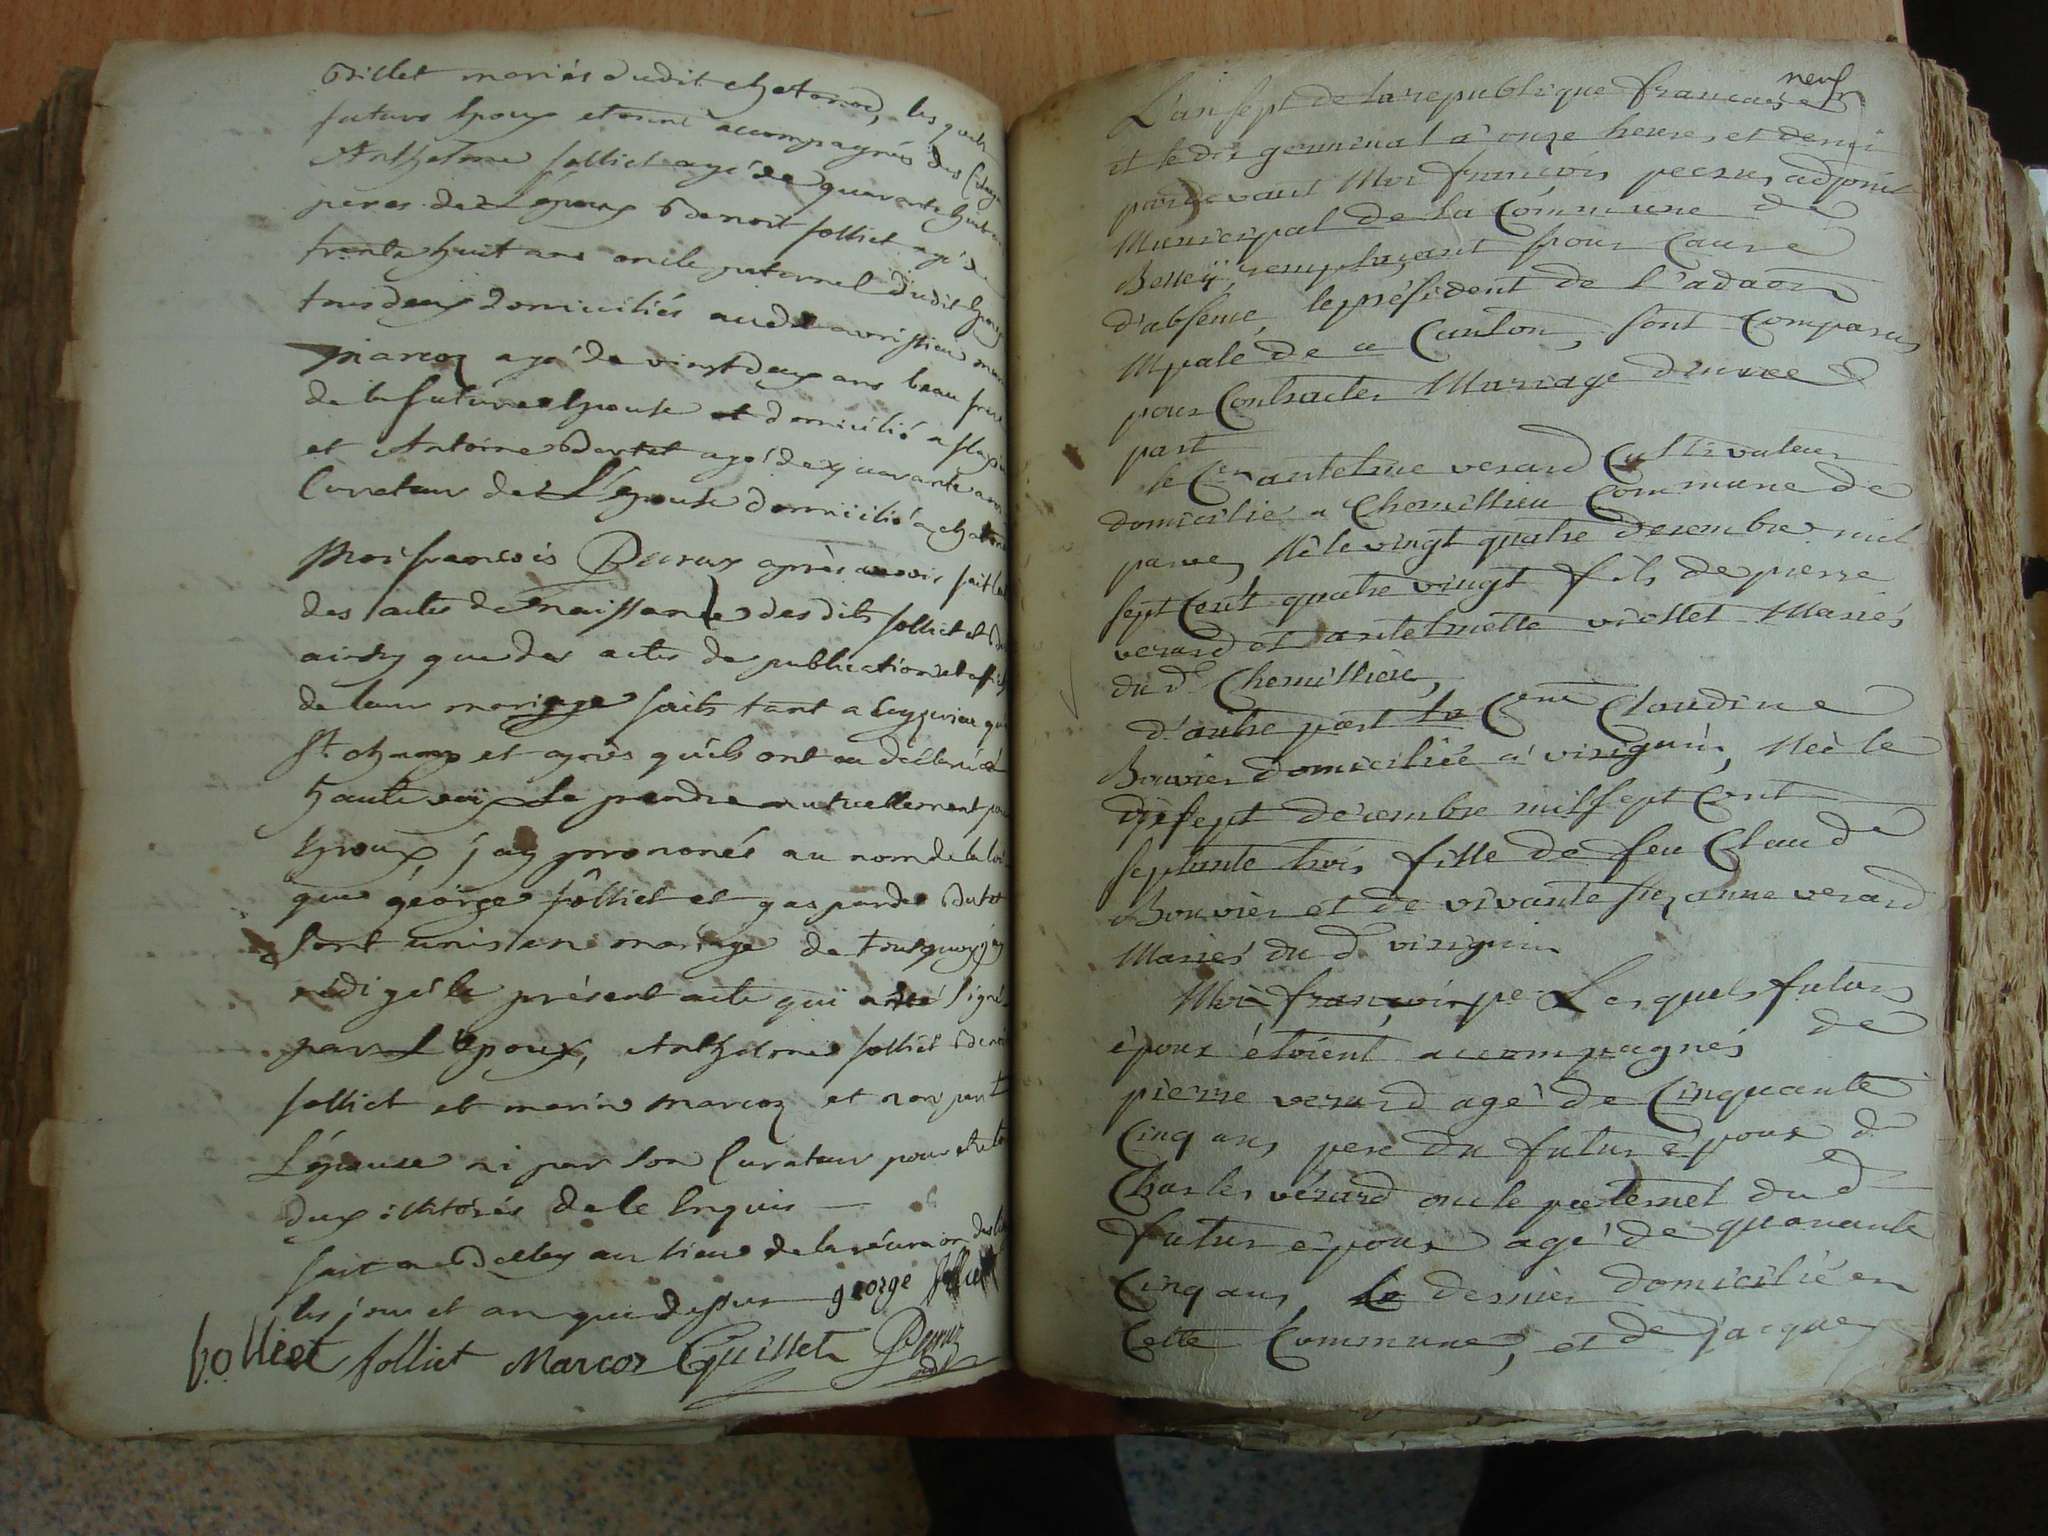 Billet mariés dudit chatonod, les quels
futurs Epoux etoient accompagnés des
Anthelme folliet agé de quarante huit
peres de L'Epoux Benoit folliet agé de
trente huit ans oncle paternel dudit Epoux
tous deux domiciliés audit
marcoz agé de vingt deux ans beau frere
de la future Epouse et domicilié a
et Antoine Bertet agé de quarante ans
Curateur de L'Epouse domicilié a chatonod
Moi francois Peruz après avoir fait
des actes de naissance des dits folliet et
ainsy que des actes de publication et
de leur mariage faits tant a que
St champ et après qu'ils ont eu déclaré a
haute voix Se prendre mutuellement pour
Epoux, j'ay prononcé au nom de la loi
que géorge folliet et gasparde
Sont unis en mariage de tous quoy j'ay
redigé le présent acte qui a été Signé
par L'Epoux, Anthelme folliet Benoit
folliet et marin marcoz et non par
L'épouse ni par Son Curateur pour être
deux illitérés de ce Enquis
fait a Belley au lieu de la réunion des
les jour et an que dessus george folliet
folliet folliet Marcoz Guillet Peruz
neuf
L'an sept de la republique francaise
et le dix germinal a onze heures et demi
pardevant Moi francois peeruz adjoint
Municipal de la Commune de
Belleÿ, remplaçant pour Cause
d'absence, le président de L'adaon
Mpale de ce Canton, sont Comparus
pour Contracter Mariage d'une
part
le Cen antelme verard Cultivateur
domicilié a Chemillieu Commune de
parves, Né le vingt quatre decembre mil
sept Cent quatre vingt fils de pierre
verard et antelmette viollet Mariés
du d Chemillieu,
d'autre part la Cenne Claudine
Bouvier domiciliée a virignin, Neè le
dixsept decembre mil sept Cent
septante trois fille de feu Claude
Bouvier et de vivante suzanne verard
Mariés du d virignin
Moi francois pe Lesquels futurs
époux étoient accompagnés de
pierre verard agé de Cinquante
Cinq ans, pere du futur époux de
Charles vérard oncle paternel du d
futur époux agé de quarante
Cinq ans, le dernier domicilié en
Cette Commune, et de jacque